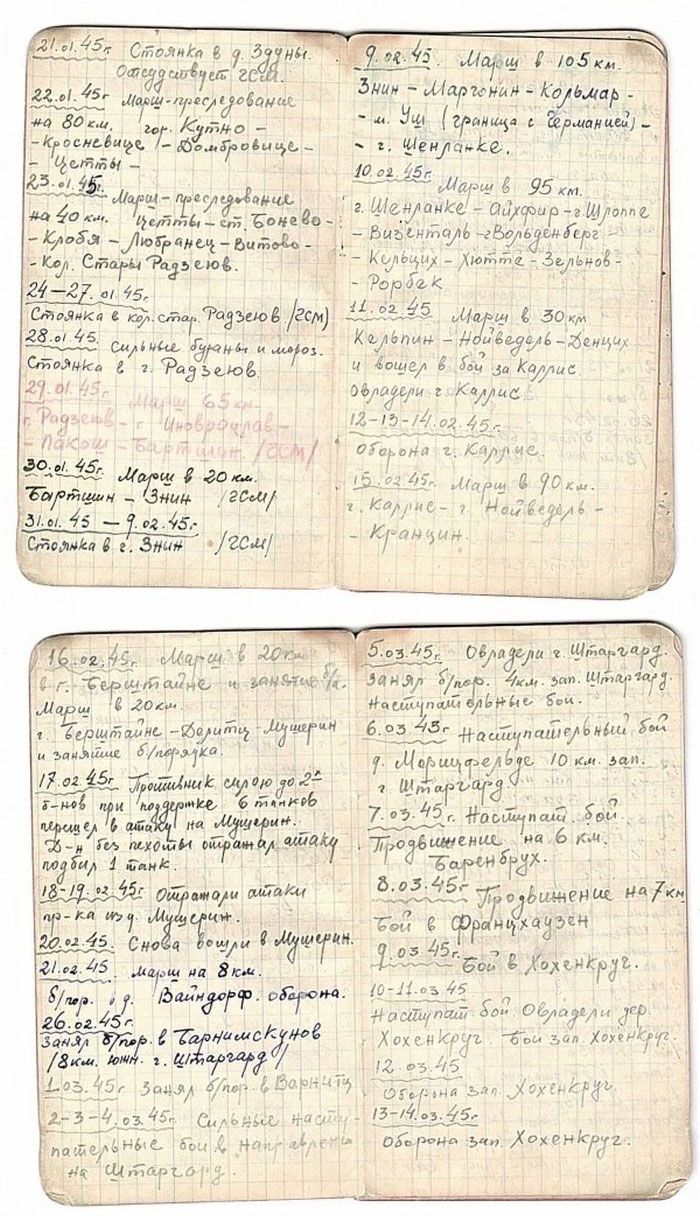 21.01.45г. Стоянка в д. Здуны.
Отсудствует ГСМ.
22.01.45г Марш-преследование
на 80 км. гор. Кутно -
- Кросневице - Домбровице -
- Цетты -
23.01.45г. Марш-преследование
на 40 км. Цетты - ст. Бонево -
- Клобя - Любранец - Витово -
- Кол. Стары Радзеюв.
24-27.01.45г.
Стоянка в кол. стар. Радзеюв /ГСМ/
28.01.45. сильные бураны и мороз.
Стоянка в г. Радзеюв.
29.01.45г. Марш 65 км.
г. Радзеюв - г. Иновроцлав -
- Пакош - Бартшин. /ГСМ/
30.01.45г. Марш в 20 км.
Бартшин - Знин /ГСМ/
31.01.45 - 9.02.45г
Стоянка в г. Знин /ГСМ/
9.02.45. Марш в 105 км.
Знин - Маргонин - Кольмар -
- м. Уш (граница с Германией) -
- г. Шенланке.
10.02.45г. Марш в 95 км.
г. Шенланке - Айхфир - г Шлоппе
- Визенталь - г Вольденберг -
- Кельцих - Хютте - Зельнов -
- Рорбек
11.02.45 Марш в 30 км
Кельпин - Нойведель - Денцих
и вошел в бой за Каллис
овладели г Каллис.
12-13-14.02.45г.
оборона г. Каллис.
15.02.45г. Марш в 90 км.
г. Каллис - г. Нойведель -
- Кранцин.
16.02.45г. Марш в 20 км
в г. Берштайне и занятие б/п.
Марш в 20 км.
г. Берштайне - Долитц - Мушерин
и занятие б/порядка.
17.02.45г Противник силою до 2х
б-нов при поддержке 6 танков
перешел в атаку на Мушерин.
Д-н без пехоты отражал атаку
подбил 1 танк.
18-19.02.45г Отражали атаки
пр-ка из д. Мушерин.
20.02.45. Снова вошли в Мушерин.
21.02.45. Марш на 8 км.
б/пор. о д. Вайндорф. оборона.
26.02.45г.
занял б/пор. в Барнимскунов
/8 км. южн. г. Штаргард/
1.03.45г Занял б/пор. в Варнитц
2-3-4.03.45г. Сильные насту-
пательные бои в направлении
на Штаргард.
5.03.45г. Овладели г. Штаргард.
занял б/пор. 4 км. зап. Штаргард.
Наступательные бои.
6.03.43г Наступательный бой
д. Морицфельде 10 км. зап.
г. Штаргард
7.03.45г. Наступат. бой.
Продвижение на 6 км.
Баренбрух.
8.03.45г Продвижение на 7 км
Бой в Францхаузен
9.03.45г. Бой в Хохенкруг.
10-11.03.45
Наступат. бой. Овладели дер.
Хохенкруг. Бои зап. Хохенкруг.
12.03.45
Оборона зап. Хохенкруг
13-14.03.45г
оборона зап. Хохенкруг.